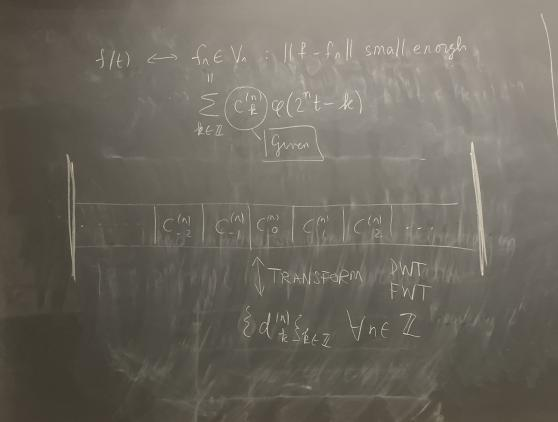 f(t) ↔ fₙ ∈ Vₙ : ||f - fₙ|| small enough
||
∑_{k∈ℤ} C_k^{(n)} φ(2ⁿt - k)
Given
. . . . . . C_{-2}^{(n)} C_{-1}^{(n)} C_0^{(n)} C_1^{(n)} C_2^{(n)} . . .
↕ TRANSFORM DWT
FWT
{d_k^{(n)}}_{k∈ℤ} ∀n∈ℤ